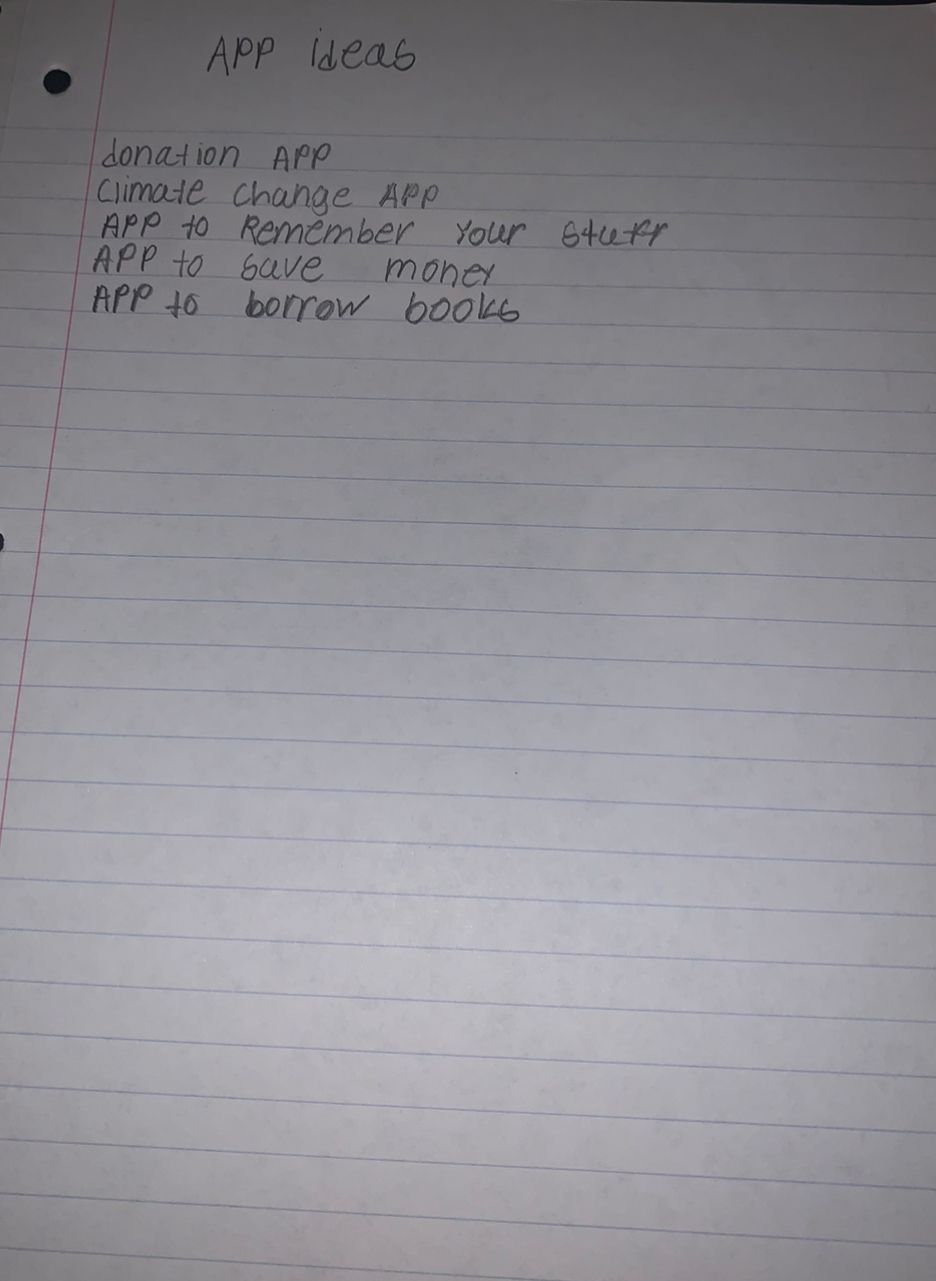 APP ideas
donation APP
climate change APP
APP to Remember your stuff
APP to save money
APP to borrow books